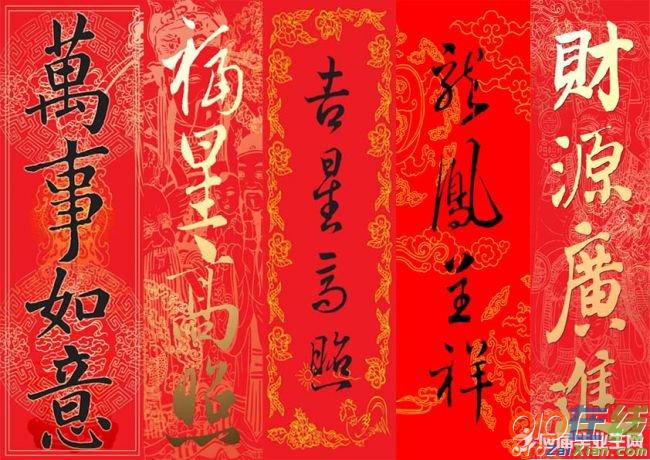 萬事如意
福星高照
吉星高照
龍鳳呈祥
財源廣進
910在线
ZaiXian.com